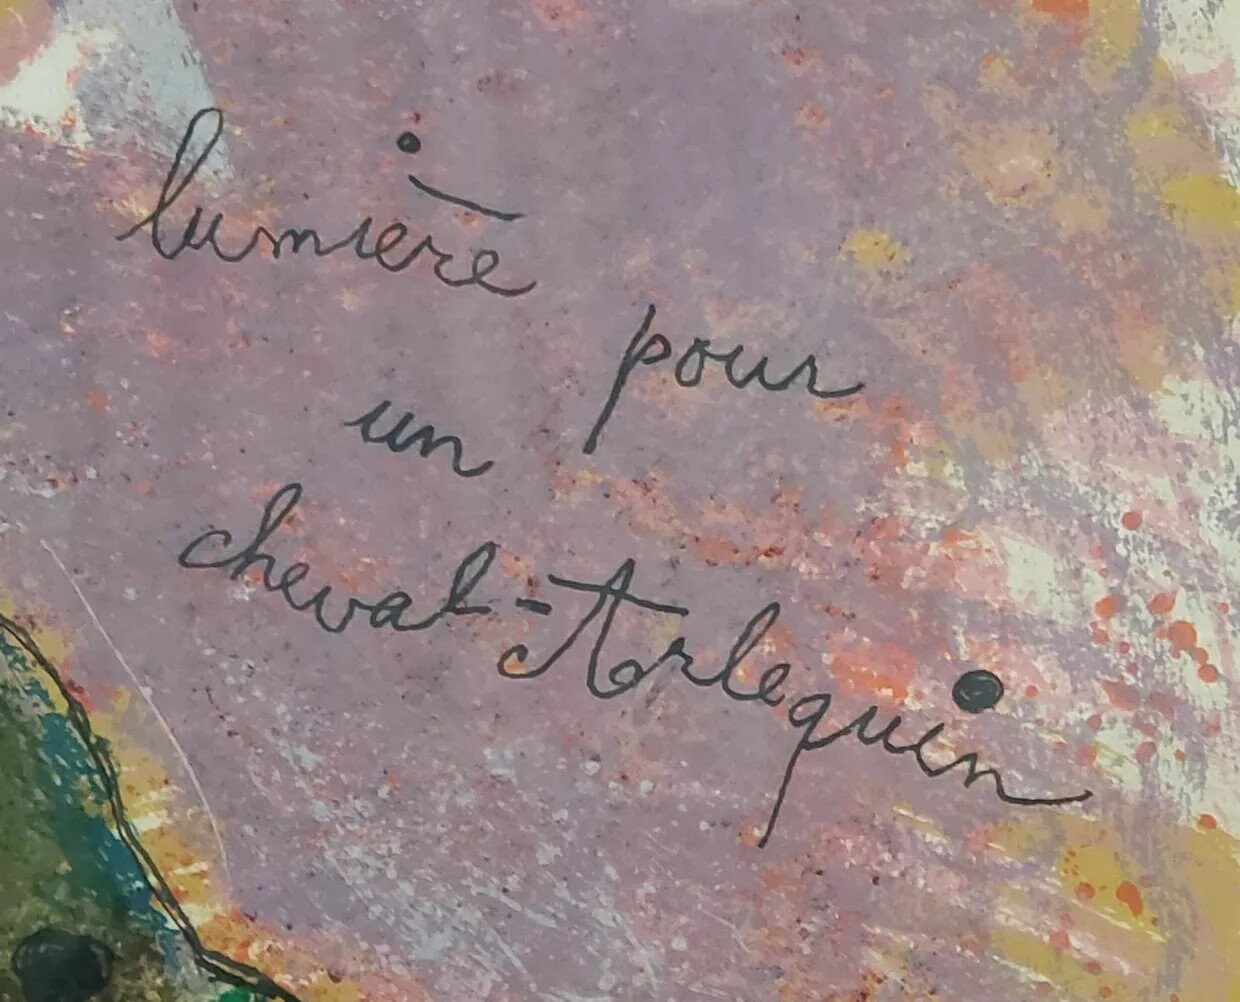 lumière pour
un
cheval-Arlequin